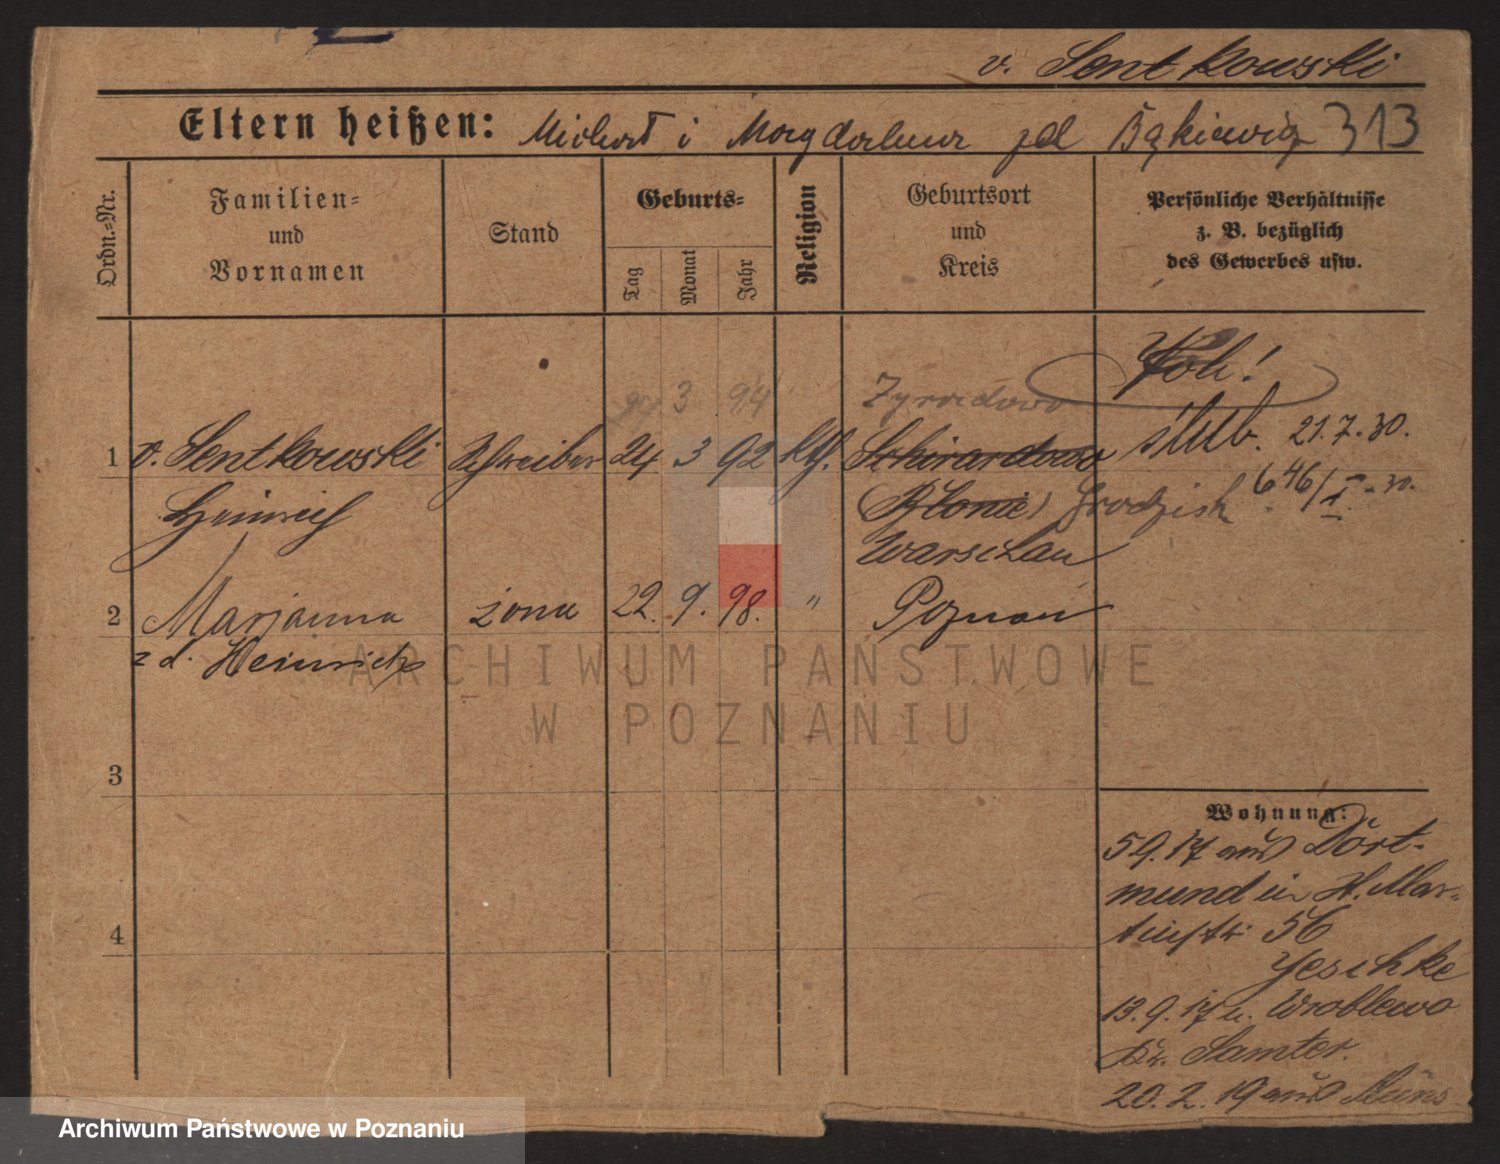 v. Sentkowski
Eltern heißen: Michał i Magdalena zd Bąkiewicz 313
Ordn.-Nr.
Familien-
und
Vornamen
Stand
Geburts-
Tag
Monat
Jahr
Religion
Geburtsort
und
Kreis
Persönliche Verhältnisse
z. B. bezüglich
des Gewerbes usw.
3 94 Zyrardowo
1 v. Sentkowski Schreiber 24 3 92 kth. Schirardowo ślub. 21.7.30.
Heinrich (Blonie) Grodzisk 646/I-30.
Warschau
2 Marjanna żona 22. 9. 98. " Poznań
z d. Heinrich
3
4
Wohnung:
5.9.17 aus Dort-
mund in St. Mar-
tinstr. 56
Jeschke
13.9.17 n. Wroblewo
Kr. Samter.
20.2.19 aus Müns
ARCHIWUM PAŃSTWOWE
W POZNANIU
Archiwum Państwowe w Poznaniu